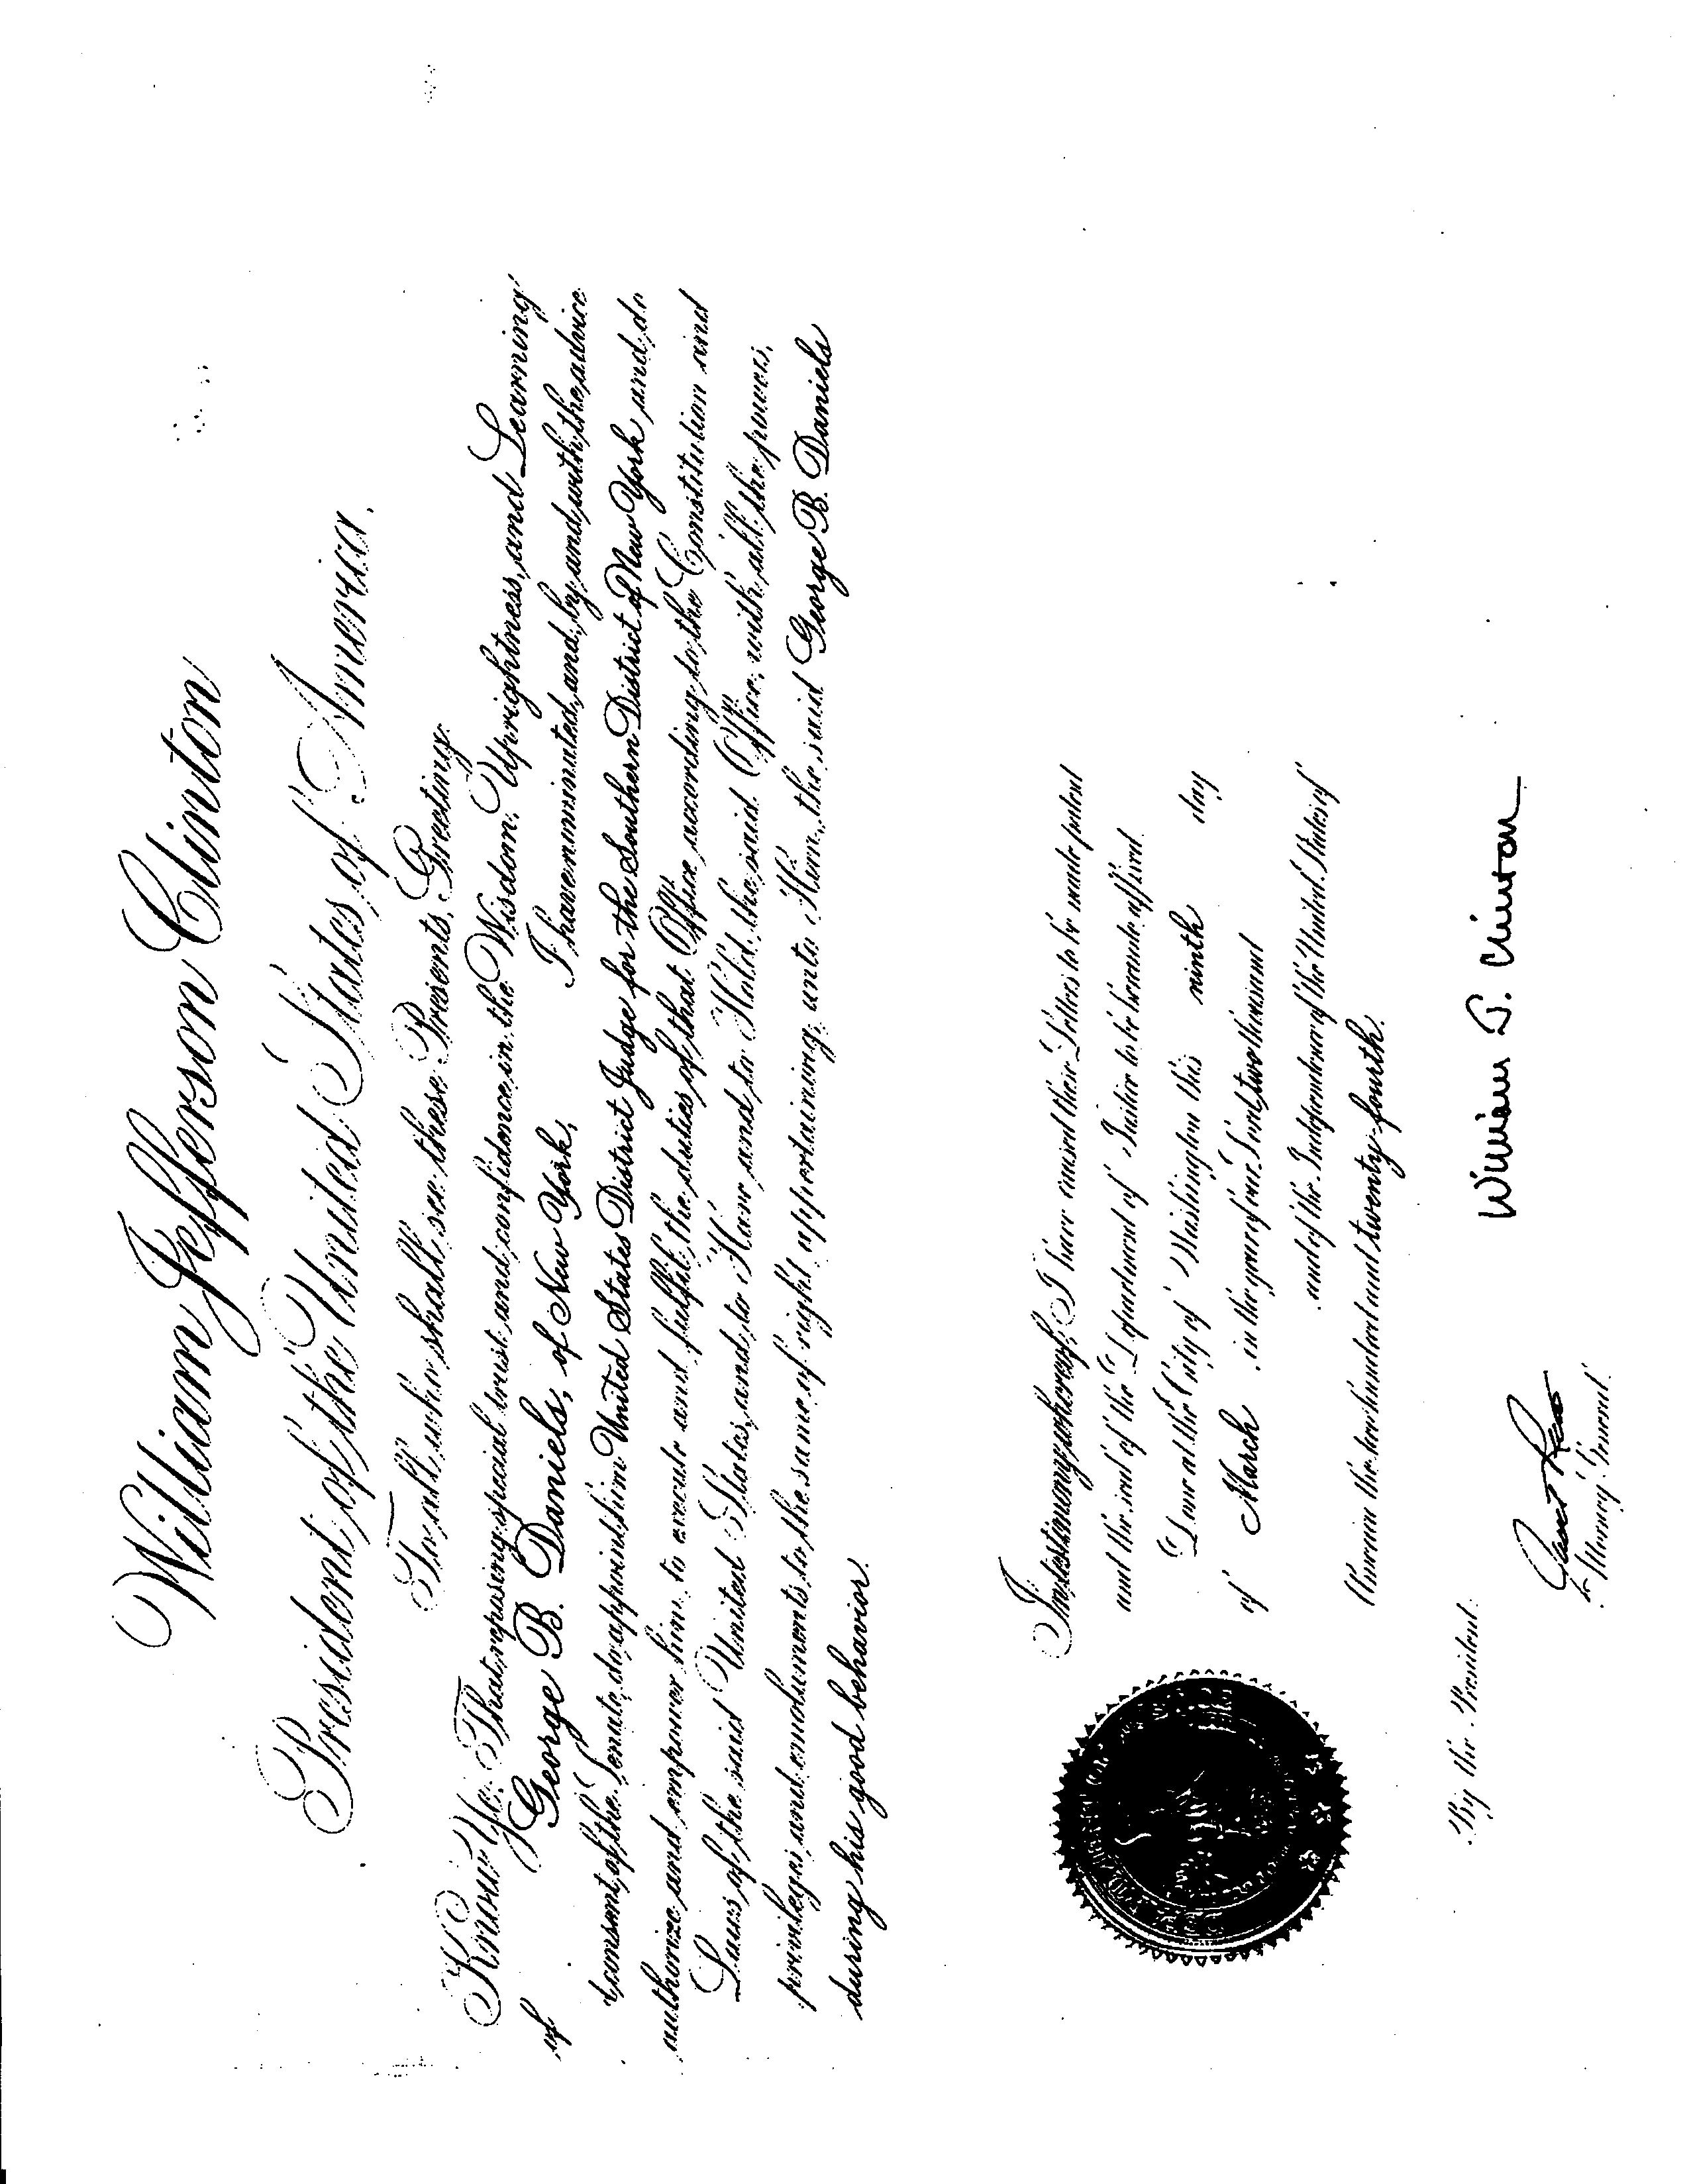 William Jefferson Clinton
President of the United States of America.
To all who shall see these Presents, Greeting:
Know Ye: That reposing special trust and confidence in the Wisdom, Uprightness, and Learning
of George B. Daniels, of New York, I have nominated, and, by and with the advice
consent of the Senate, do appoint him United States District Judge for the Southern District of New York and do
authorize and empower him to execute and fulfil the duties of that Office according to the Constitution and
Laws of the said United States, and to Have and to Hold the said Office, with all the powers,
privileges, and emoluments to the same of right appertaining, unto Him, the said George B. Daniels
during his good behavior.
In testimony whereof, I have caused these Letters to be made patent
and the seal of the Department of Justice to be hereunto affixed.
Done at the City of Washington this ninth day
of March in the year of our Lord two thousand
and of the Independence of the United States of
America the two hundred and twenty-fourth.
William J. Clinton
By the President:
Janet Reno
Attorney General.